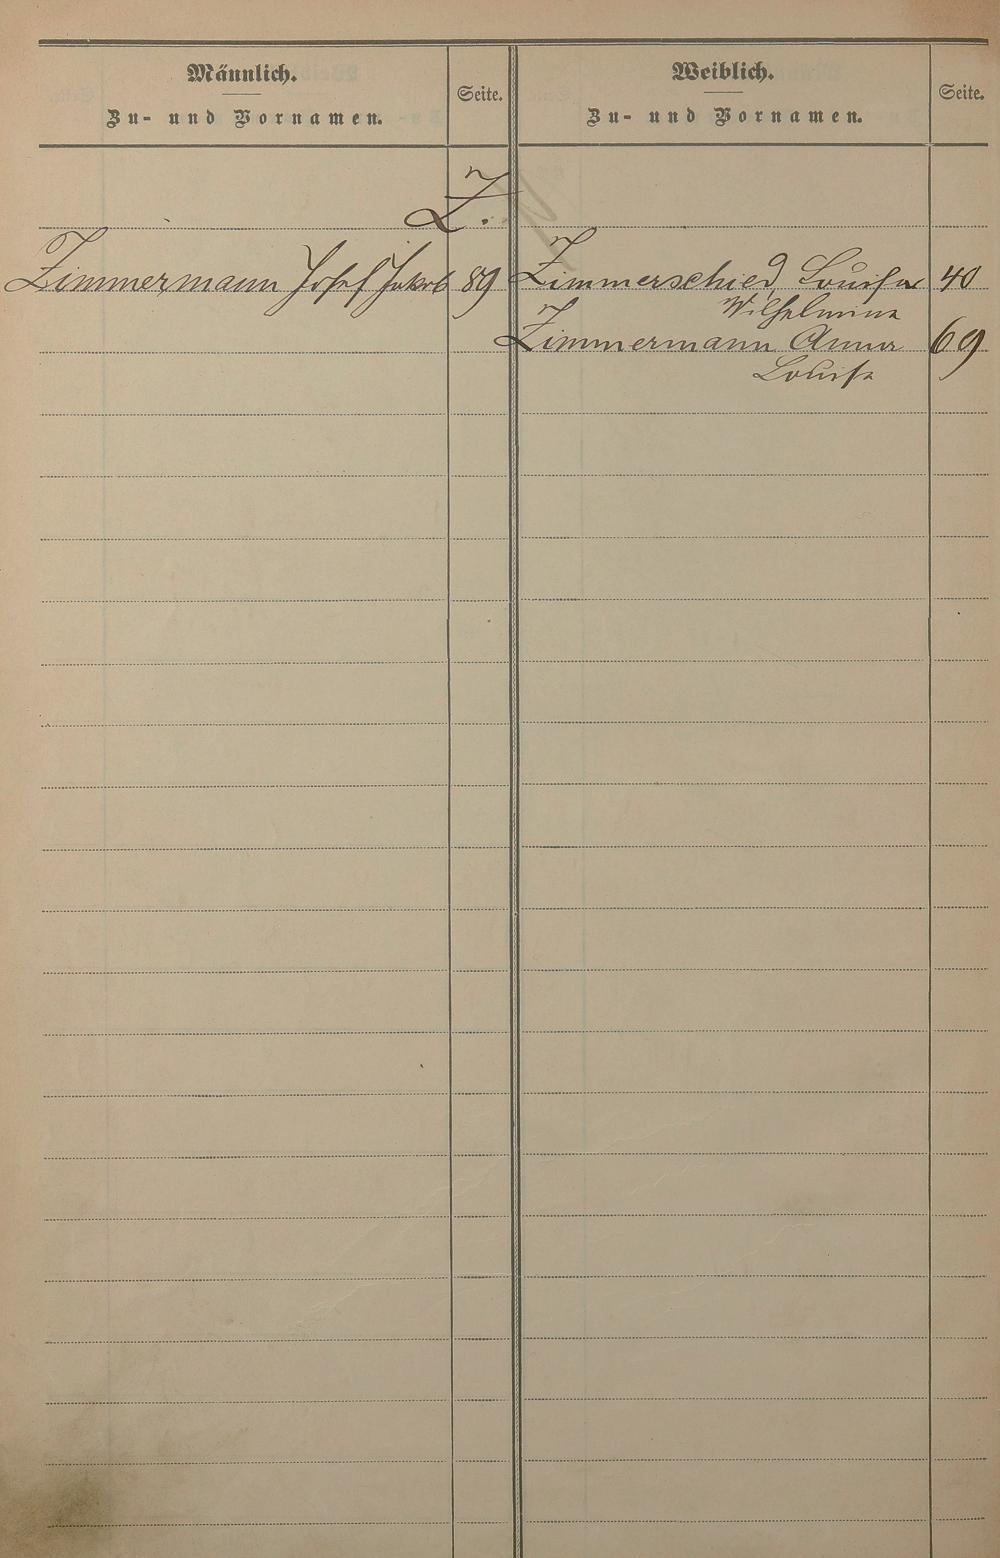 Männlich.
Zu- und Vornamen.
Seite.
Weiblich.
Zu- und Vornamen.
Seite.
Z.
Zimmermann Josef Jakob 89
Zimmerschied, Louise 40
Wilhelmina
Zimmermann Anna 69
Louise